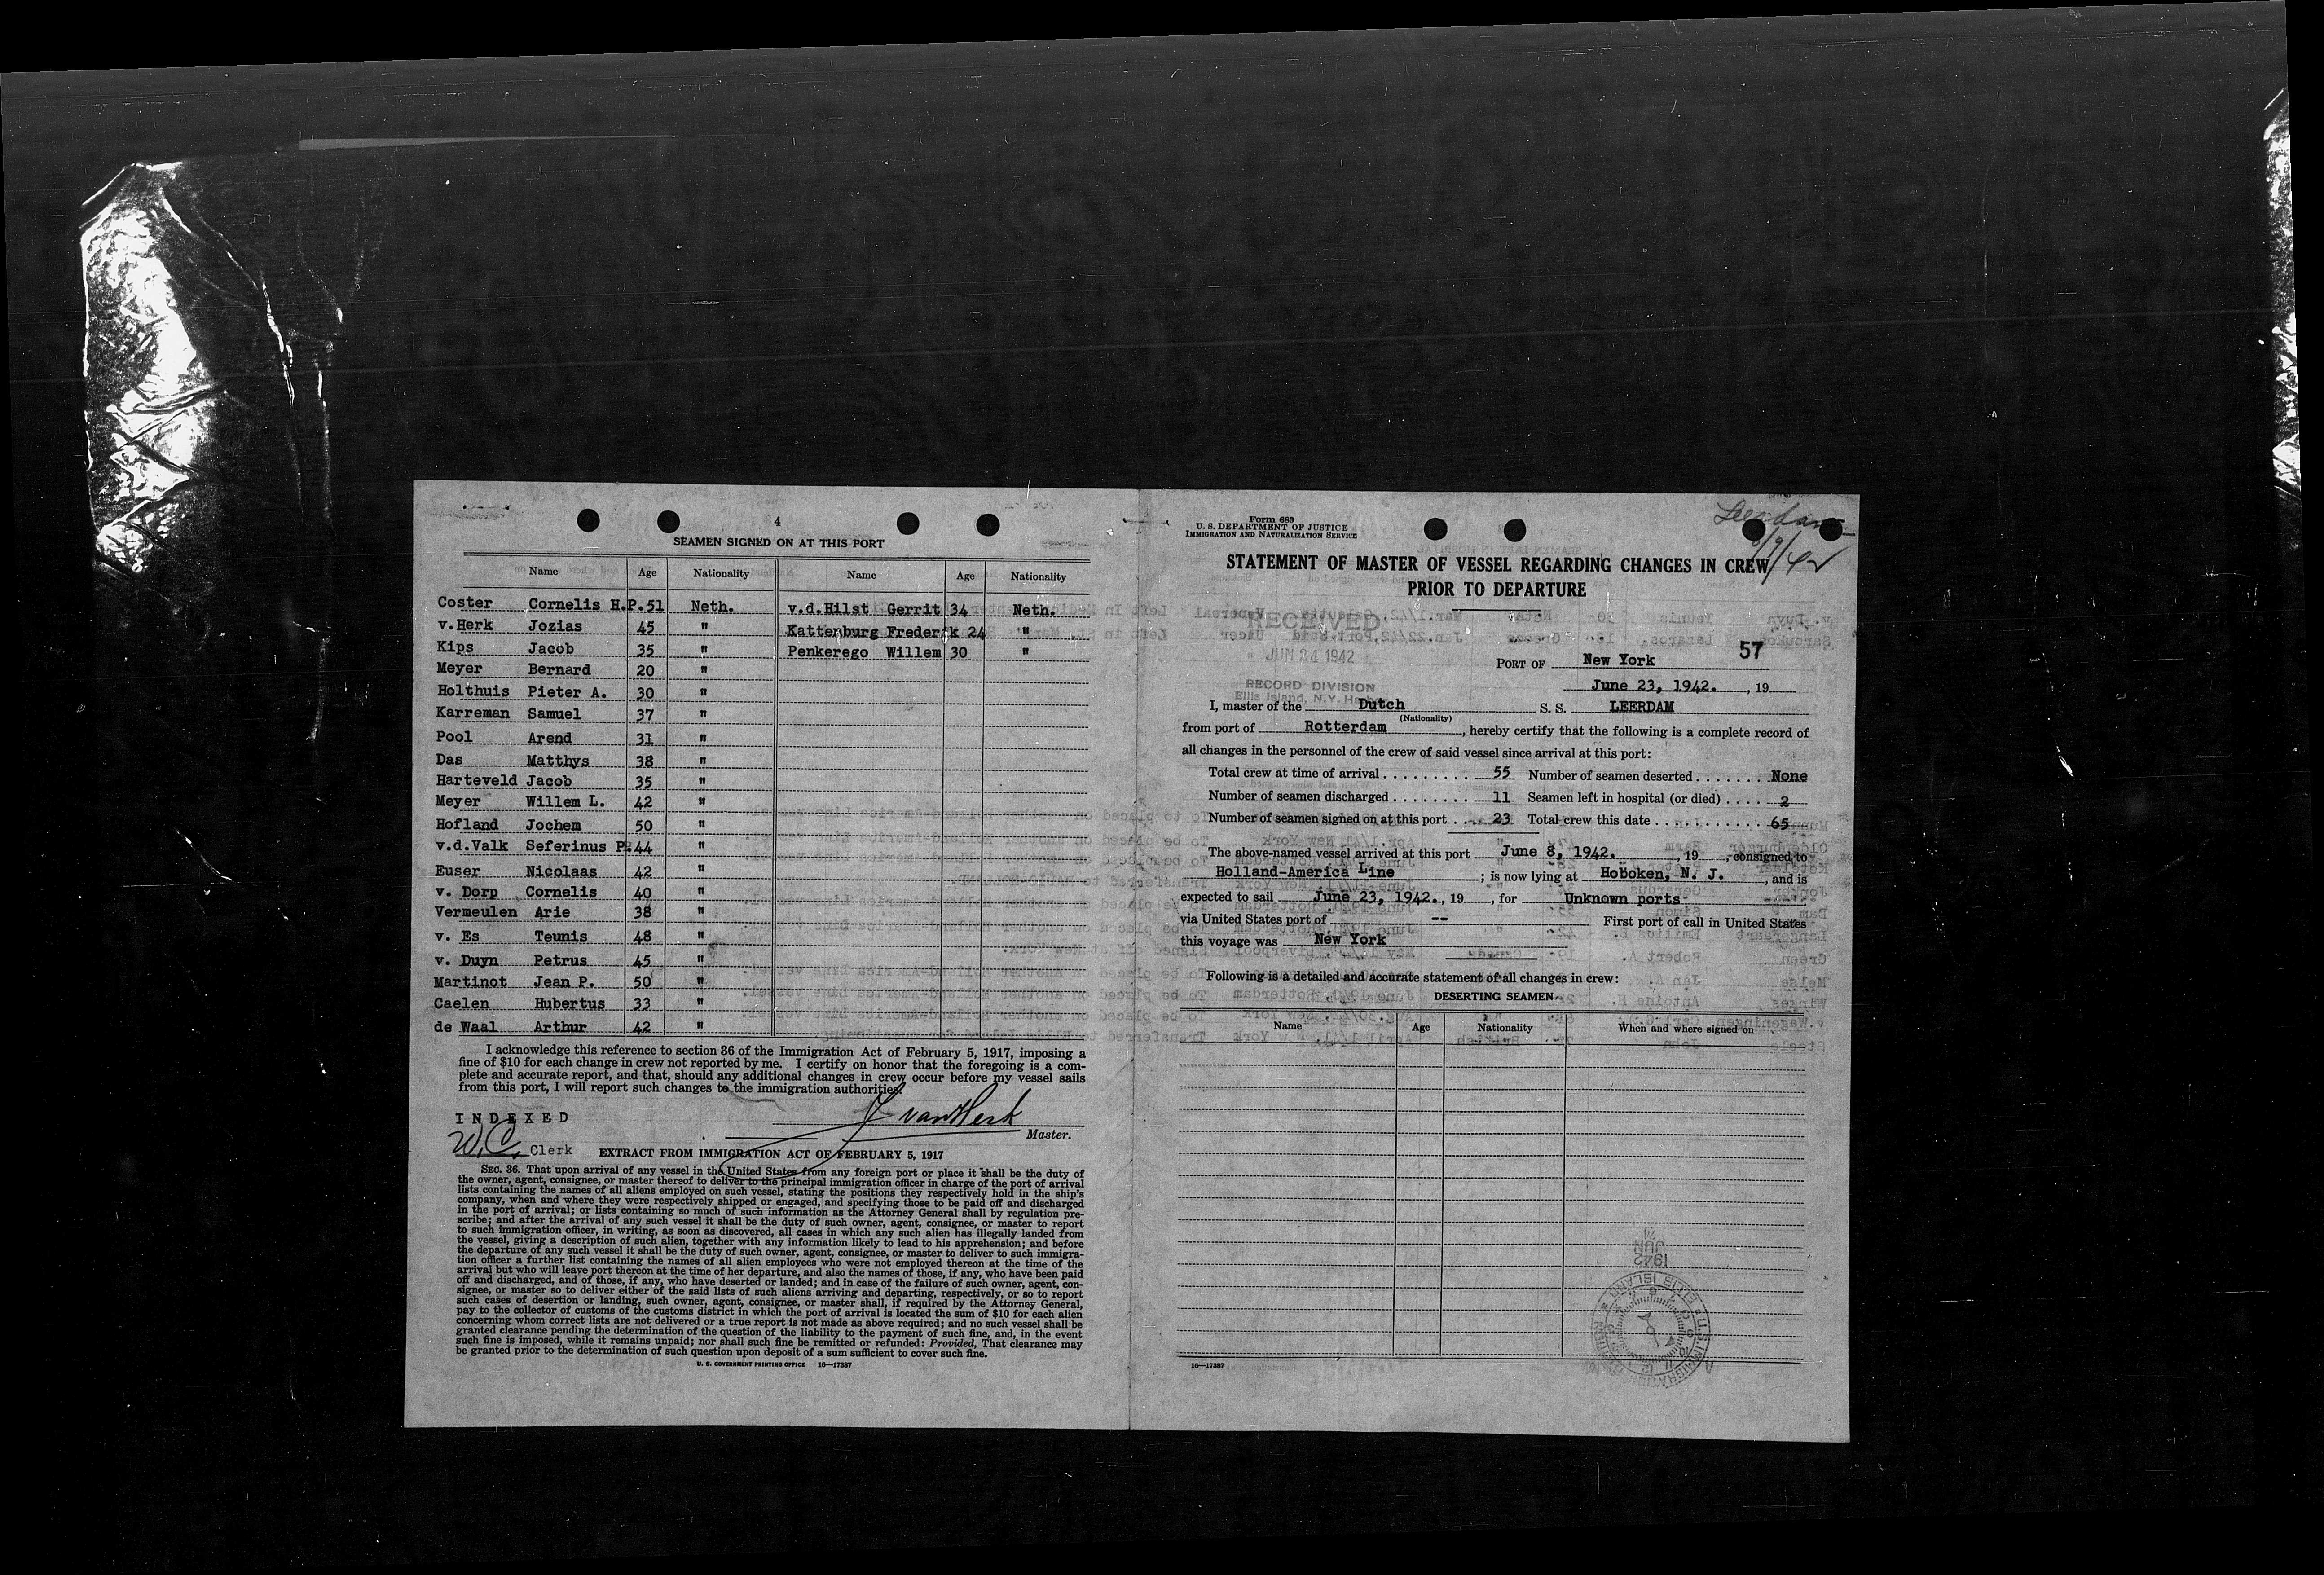 4
SEAMEN SIGNED ON AT THIS PORT
Name Age Nationality Name Age Nationality
Coster Cornelis H.P. 51 Neth. v.d.Hilst Gerrit 34 Neth.
v.Herk Jozias 45 " Kattenburg Frederik 24 "
Kips Jacob 35 " Penkerego Willem 30 "
Meyer Bernard 20 "
Holthuis Pieter A. 30 "
Karreman Samuel 37 "
Pool Arend 31 "
Das Matthys 38 "
Harteveld Jacob 35 "
Meyer Willem L. 42 "
Hofland Jochem 50 "
v.d.Valk Seferinus P. 44 "
Euser Nicolaas 42 "
v. Dorp Cornelis 40 "
Vermeulen Arie 38 "
v. Es Teunis 48 "
v. Duyn Petrus 45 "
Martinot Jean P. 50 "
Caelen Hubertus 33 "
de Waal Arthur 42 "
I acknowledge this reference to section 36 of the Immigration Act of February 5, 1917, imposing a
fine of $10 for each change in crew not reported by me. I certify on honor that the foregoing is a com-
plete and accurate report, and that, should any additional changes in crew occur before my vessel sails
from this port, I will report such changes to the immigration authorities.
INDEXED
J vanHerk
Master.
W.C. Clerk
EXTRACT FROM IMMIGRATION ACT OF FEBRUARY 5, 1917
SEC. 36. That upon arrival of any vessel in the United States from any foreign port or place it shall be the duty of
the owner, agent, consignee, or master thereof to deliver to the principal immigration officer in charge of the port of arrival
lists containing the names of all aliens employed on such vessel, stating the positions they respectively hold in the ship's
company, when and where they were respectively shipped or engaged, and specifying those to be paid off and discharged
in the port of arrival; or lists containing so much of such information as the Attorney General shall by regulation pre-
scribe; and after the arrival of any such vessel it shall be the duty of such owner, agent, consignee, or master to report
to such immigration officer, in writing, as soon as discovered, all cases in which any such alien has illegally landed from
the vessel, giving a description of such alien, together with any information likely to lead to his apprehension; and before
the departure of any such vessel it shall be the duty of such owner, agent, consignee, or master to deliver to such immigra-
tion officer a further list containing the names of all alien employees who were not employed thereon at the time of the
arrival but who will leave port thereon at the time of her departure, and also the names of those, if any, who have been paid
off and discharged, and of those, if any, who have deserted or landed; and in case of the failure of such owner, agent, con-
signee, or master so to deliver either of the said lists of such aliens arriving and departing, respectively, or so to report
such cases of desertion or landing, such owner, agent, consignee, or master shall, if required by the Attorney General,
pay to the collector of customs of the customs district in which the port of arrival is located the sum of $10 for each alien
concerning whom correct lists are not delivered or a true report is not made as above required; and no such vessel shall be
granted clearance pending the determination of the question of the liability to the payment of such fine, and, in the event
such fine is imposed, while it remains unpaid; nor shall such fine be remitted or refunded: Provided, That clearance may
be granted prior to the determination of such question upon deposit of a sum sufficient to cover such fine.
U. S. GOVERNMENT PRINTING OFFICE 16—17387
Form 689
U. S. DEPARTMENT OF JUSTICE
IMMIGRATION AND NATURALIZATION SERVICE
Leerdam
6/9/42
STATEMENT OF MASTER OF VESSEL REGARDING CHANGES IN CREW
PRIOR TO DEPARTURE
RECEIVED
JUN 24 1942
RECORD DIVISION
Ellis Island, N.Y. Harbor
57
PORT OF New York
June 23, 1942. , 19
I, master of the Dutch S. S. LEERDAM
(Nationality)
from port of Rotterdam , hereby certify that the following is a complete record of
all changes in the personnel of the crew of said vessel since arrival at this port:
Total crew at time of arrival . . . . . . . . . 55 Number of seamen deserted . . . . . . . None
Number of seamen discharged . . . . . . . . 11 Seamen left in hospital (or died) . . . . 2
Number of seamen signed on at this port . . . 23 Total crew this date . . . . . . . . . . . 65
The above-named vessel arrived at this port June 8, 1942. , 19 , consigned to
Holland-America Line ; is now lying at Hoboken, N. J. , and is
expected to sail June 23, 1942. , 19 , for Unknown ports
via United States port of -- First port of call in United States
this voyage was New York
Following is a detailed and accurate statement of all changes in crew:
DESERTING SEAMEN
Name Age Nationality When and where signed on
16—17387
JUN
1942
U.S. IMMIGRATION
ELLIS ISLAND